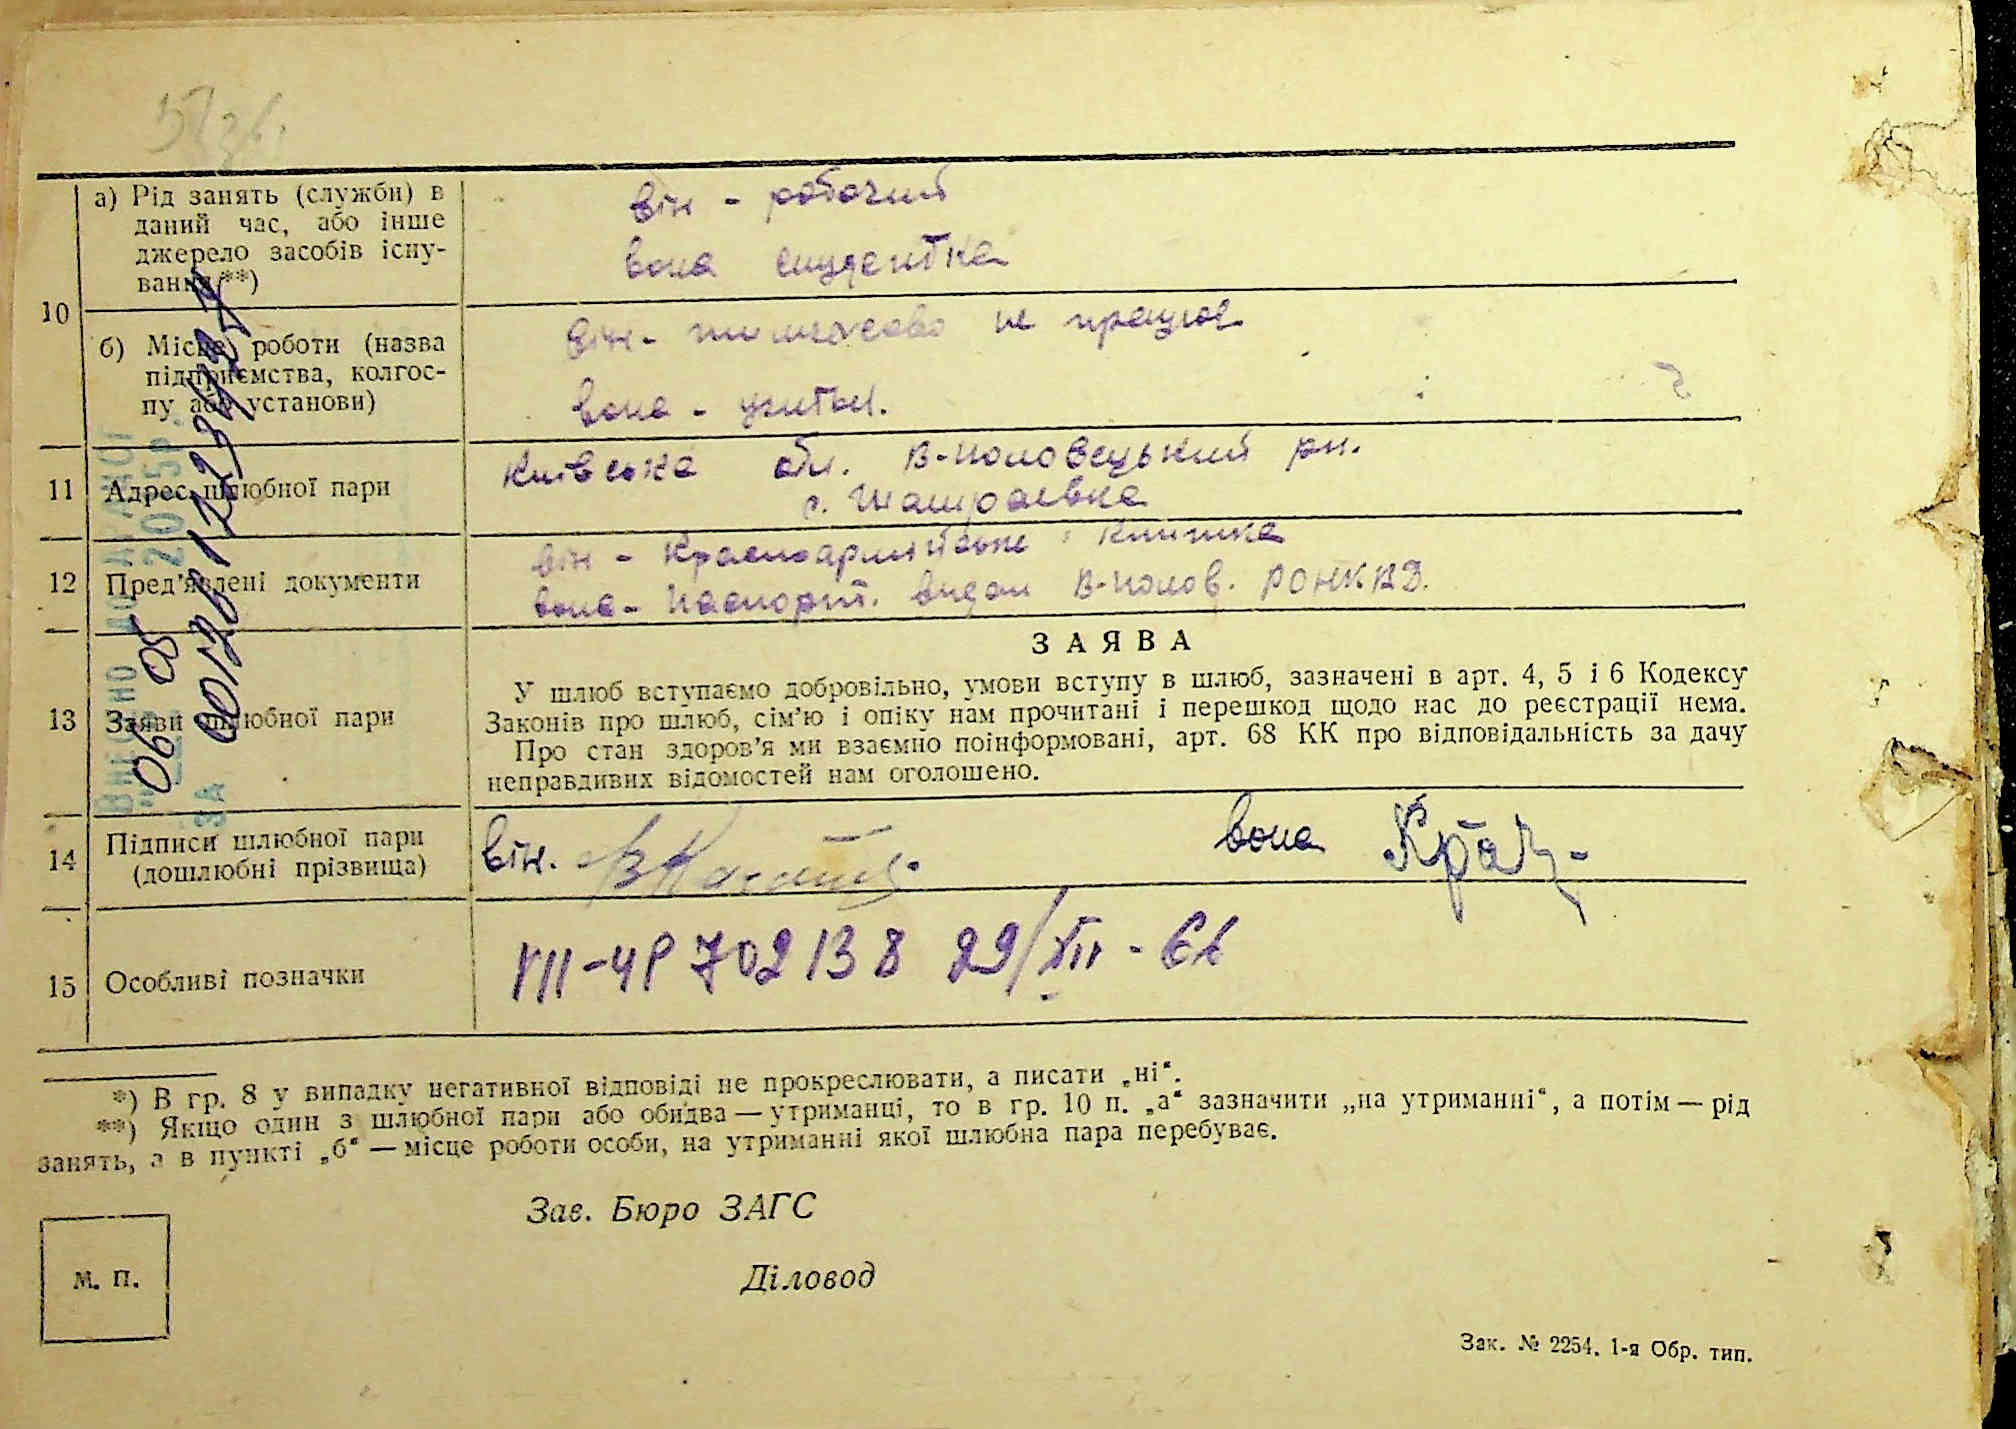 10
а) Рід занять (служби) в
даний час, або інше
джерело засобів існу-
вання**)
він - робочий
вона студентка
б) Місце роботи (назва
підприємства, колгос-
пу або установи)
він - тимчасово не працює
вона - учиться.
11
Адрес шлюбної пари
Київська обл. В-Половецький рн.
с. Шамраєвка
12
Пред'явлені документи
він - Красноармійська книжка
вона - Паспорт. видан В-Полов. РОНКВД.
13
Заяви шлюбної пари
ЗАЯВА
У шлюб вступаємо добровільно, умови вступу в шлюб, зазначені в арт. 4, 5 і 6 Кодексу
Законів про шлюб, сім'ю і опіку нам прочитані і перешкод щодо нас до реєстрації нема.
Про стан здоров'я ми взаємно поінформовані, арт. 68 КК про відповідальність за дачу
неправдивих відомостей нам оголошено.
14
Підписи шлюбної пари
(дошлюбні прізвища)
він.
вона
15
Особливі позначки
VII-ЧР 702138 29/XII-
*) В гр. 8 у випадку негативної відповіді не прокреслювати, а писати „ні“.
**) Якщо один з шлюбної пари або обидва — утриманці, то в гр. 10 п. „а“ зазначити „на утриманні“, а потім — рід
занять, а в пункті „б“ — місце роботи особи, на утриманні якої шлюбна пара перебуває.
Зав. Бюро ЗАГС
Діловод
М. П.
Зак. № 2254. 1-я Обр. тип.
ВНЕСЕНО ДО ДРАЦСГ
06 05 2015р.
ЗА 00126122